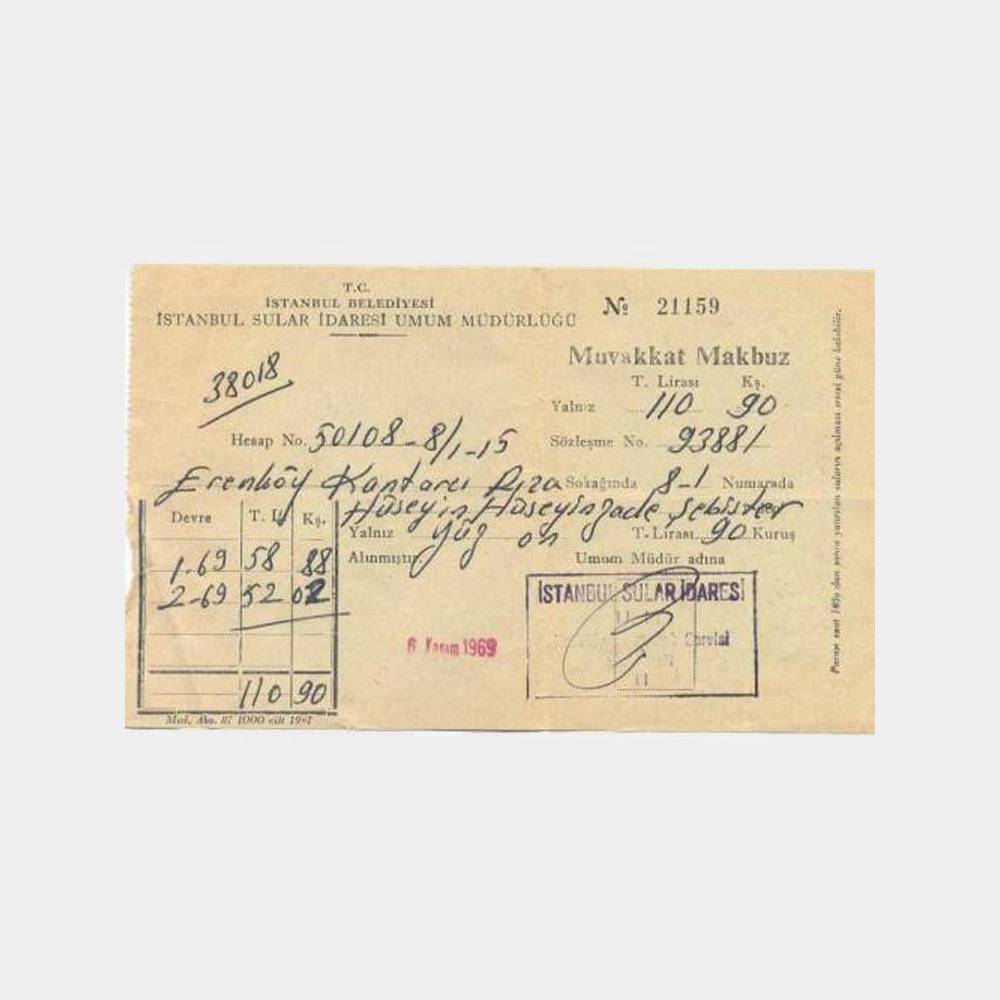 T.C.
İSTANBUL BELEDİYESİ
İSTANBUL SULAR İDARESİ UMUM MÜDÜRLÜĞÜ
№ 21159
Muvakkat Makbuz
T. Lirası Kş.
Yalnız 110 90
38018
Hesap No. 50108-8/1-15
Sözleşme No. 93881
Erenköy Kantarcı Rıza Sokağında 8-1 Numarada
Hüseyin Hüseyinzade Şebister
Yalnız Yüz on T. Lirası 90 Kuruş
Alınmıştır.
Umum Müdür adına
Devre T. L. Kş.
1-69 58 88
2-69 52 02
110 90
İSTANBUL SULAR İDARESİ
Servisi
6 Kasım 1969
Mod. Abo. 87 1000 cilt